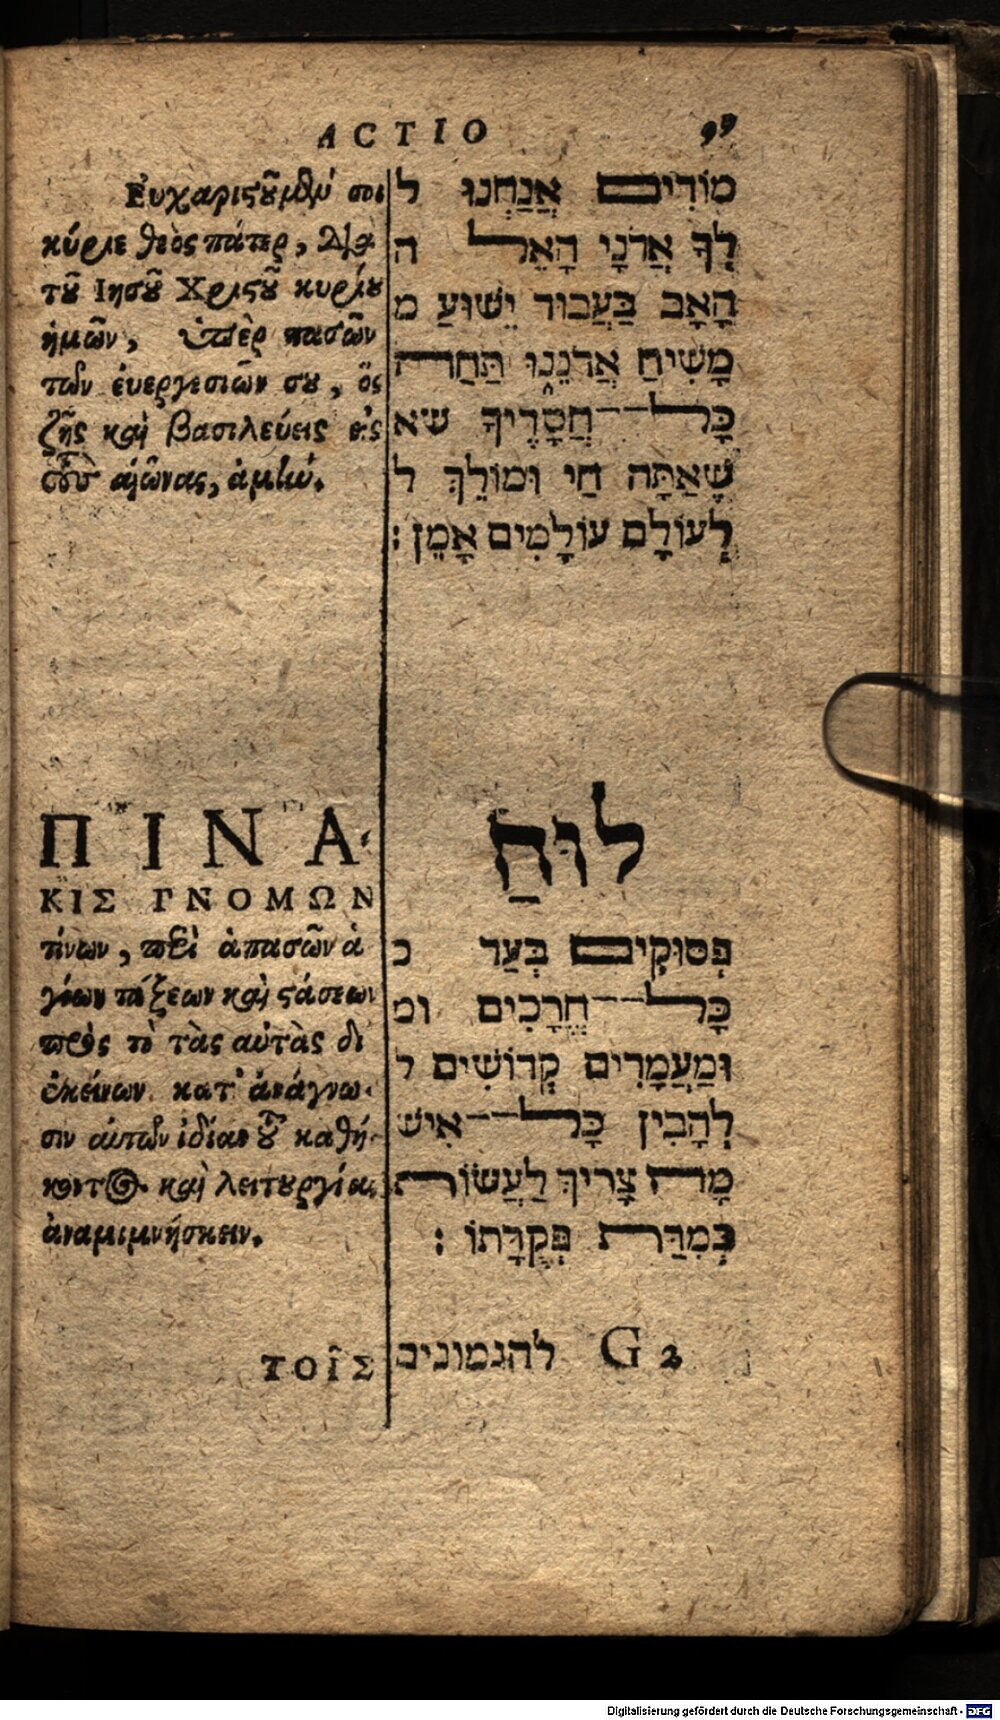 ACTIO 99
Εὐχαριςοῦμέν σοι
κύριε θεὸς πάτερ, διὰ
τοῦ Ιησοῦ Χριςοῦ κυρίου
ἡμῶν, ὑπὲρ πασῶν
τῶν ἐυεργεσιῶν σου, ὃς
ζῇς καὶ βασιλεύεις εἰς
τοὺς αἰῶνας, ἀμὴν.
ΠΙΝΑ-
ΚΙΣ ΓΝΟΜΩΝ
τίνων, περὶ ἁπασῶν ἁ
γίων τάξεων καὶ ςάσεων
πρὸς τὸ τὰς αὐτὰς δι
ἐκείνων κατ' ἀνάγνω-
σιν αὐτῶν ἰδίας καθή-
κοντος καὶ λειτουργίας
ἀναμιμνήσκειν.
ΤΟΙ͂Σ
מוֹדִים אֲנַחְנוּ ל
לְךָ אֲדֹנָי הָאֵל ה
הָאָב בַּעֲבוּר יֵשׁוּעַ מ
מָשִׁיחַ אֲדֹנֵנוּ תַּחַת
כָּל־־חֲסָדֶיךָ שא
שֶׁאַתָּה חַי וּמוֹלֵךְ ל
לְעוֹלָם עוֹלָמִים אָמֵן :
לוּחַ
פְּסוּקִים בְּעַד כ
כָּל־־חֳרָכִים ומ
וּמַעֲמָדִים קְדוֹשִׁים ל
לְהָבִין כָּל־־אִישׁ
מָה צָרִיךְ לַעֲשׂוֹת
כְּמִדַּת פְּקֻדָּתוֹ :
להגמונים G 2
Digitalisierung gefördert durch die Deutsche Forschungsgemeinschaft - DFG